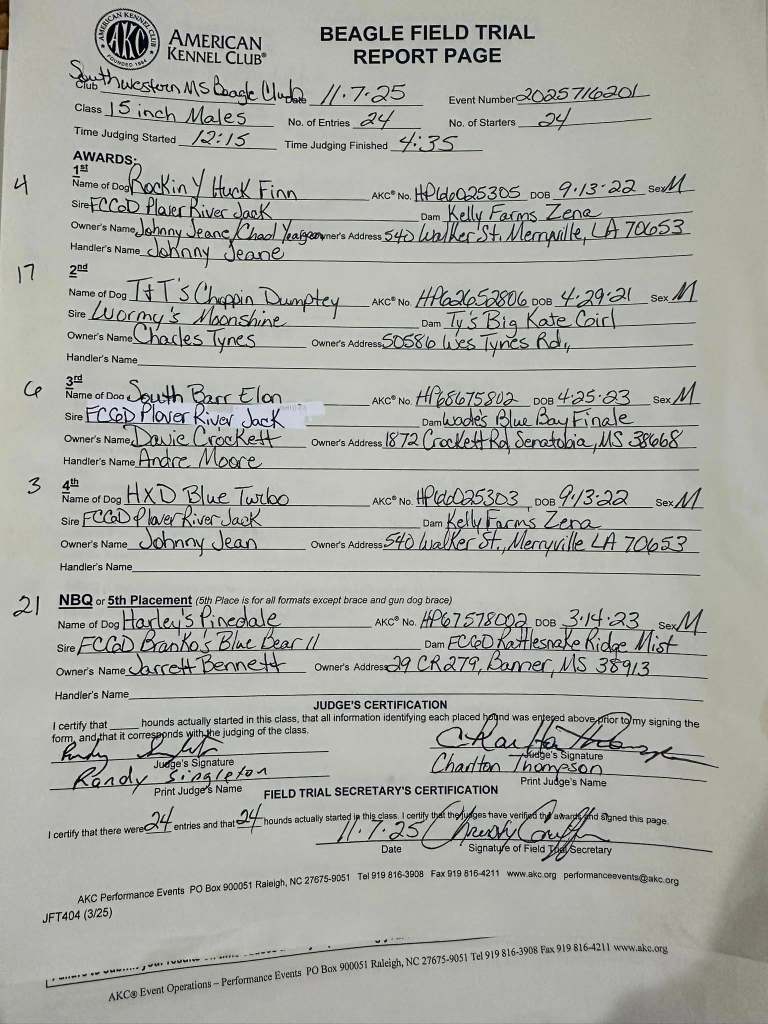 AMERICAN KENNEL CLUB
AKC
FOUNDED 1884
AMERICAN
KENNEL CLUB®
BEAGLE FIELD TRIAL
REPORT PAGE
Club Southwestern MS Beagle Club Date 11.7.25 Event Number 2025716201
Class 15 inch Males No. of Entries 24 No. of Starters 24
Time Judging Started 12:15 Time Judging Finished 4:35
AWARDS:
1st
4 Name of Dog Rockin Y Huck Finn AKC® No. HP66025305 DOB 9.13.22 Sex M
Sire FCGD Plover River Jack Dam Kelly Farms Zena
Owner's Name Johnny Jeane/Chad Yeargeon Owner's Address 540 Walker St. Merryville, LA 70653
Handler's Name Johnny Jeane
17 2nd
Name of Dog T+T's Choppin Dumptey AKC® No. HP62652806 DOB 4.29.21 Sex M
Sire Wormy's Moonshine Dam Ty's Big Kate Girl
Owner's Name Charles Tynes Owner's Address 50586 Wes Tynes Rd.,
Handler's Name
6 3rd
Name of Dog South Barr Elon AKC® No. HP68675802 DOB 4.25.23 Sex M
Sire FCGD Plover River Jack Dam Wade's Blue Bay Finale
Owner's Name Davie Crockett Owner's Address 1872 Crockett Rd, Senatobia, MS 38668
Handler's Name Andre Moore
3 4th
Name of Dog HXD Blue Turbo AKC® No. HP66025303 DOB 9.13.22 Sex M
Sire FCGD Plover River Jack Dam Kelly Farms Zena
Owner's Name Johnny Jean Owner's Address 540 Walker St., Merryville LA 70653
Handler's Name
21 NBQ or 5th Placement (5th Place is for all formats except brace and gun dog brace)
Name of Dog Harley's Pinedale AKC® No. HP67578002 DOB 3.14.23 Sex M
Sire FCGD Branko's Blue Bear II Dam FCGD Rattlesnake Ridge Mist
Owner's Name Jarrett Bennett Owner's Address 29 CR 279, Banner, MS 38913
Handler's Name
JUDGE'S CERTIFICATION
I certify that hounds actually started in this class, that all information identifying each placed hound was entered above prior to my signing the
form, and that it corresponds with the judging of the class.
Judge's Signature Judge's Signature
Randy Singleton Charlton Thompson
Print Judge's Name Print Judge's Name
FIELD TRIAL SECRETARY'S CERTIFICATION
I certify that there were 24 entries and that 24 hounds actually started in this class. I certify that the judges have verified the awards and signed this page.
11.7.25
Date Signature of Field Trial Secretary
AKC Performance Events PO Box 900051 Raleigh, NC 27675-9051 Tel 919 816-3908 Fax 919 816-4211 www.akc.org performanceevents@akc.org
JFT404 (3/25)
AKC® Event Operations – Performance Events PO Box 900051 Raleigh, NC 27675-9051 Tel 919 816-3908 Fax 919 816-4211 www.akc.org